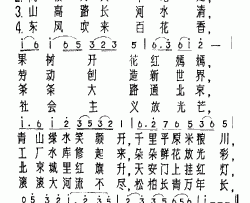 3.山高路长河水清
4.东风吹来百花香
i 6 i 6 5 3 2 3 5 | 6. 3 6 i 2 — |
果树开花红嫣嫣，
劳动创造新世界，
条条大路通北京，
社会主义放光芒，
i . 6 i 2 3 5 3 2 i
青山绿水笑颜开，千里平原米粮川
工厂水库修起来，朵朵鲜花放光彩
北京城里红旗升，天安门上挂红灯
滚滚大河流不尽，松柏长青万年长